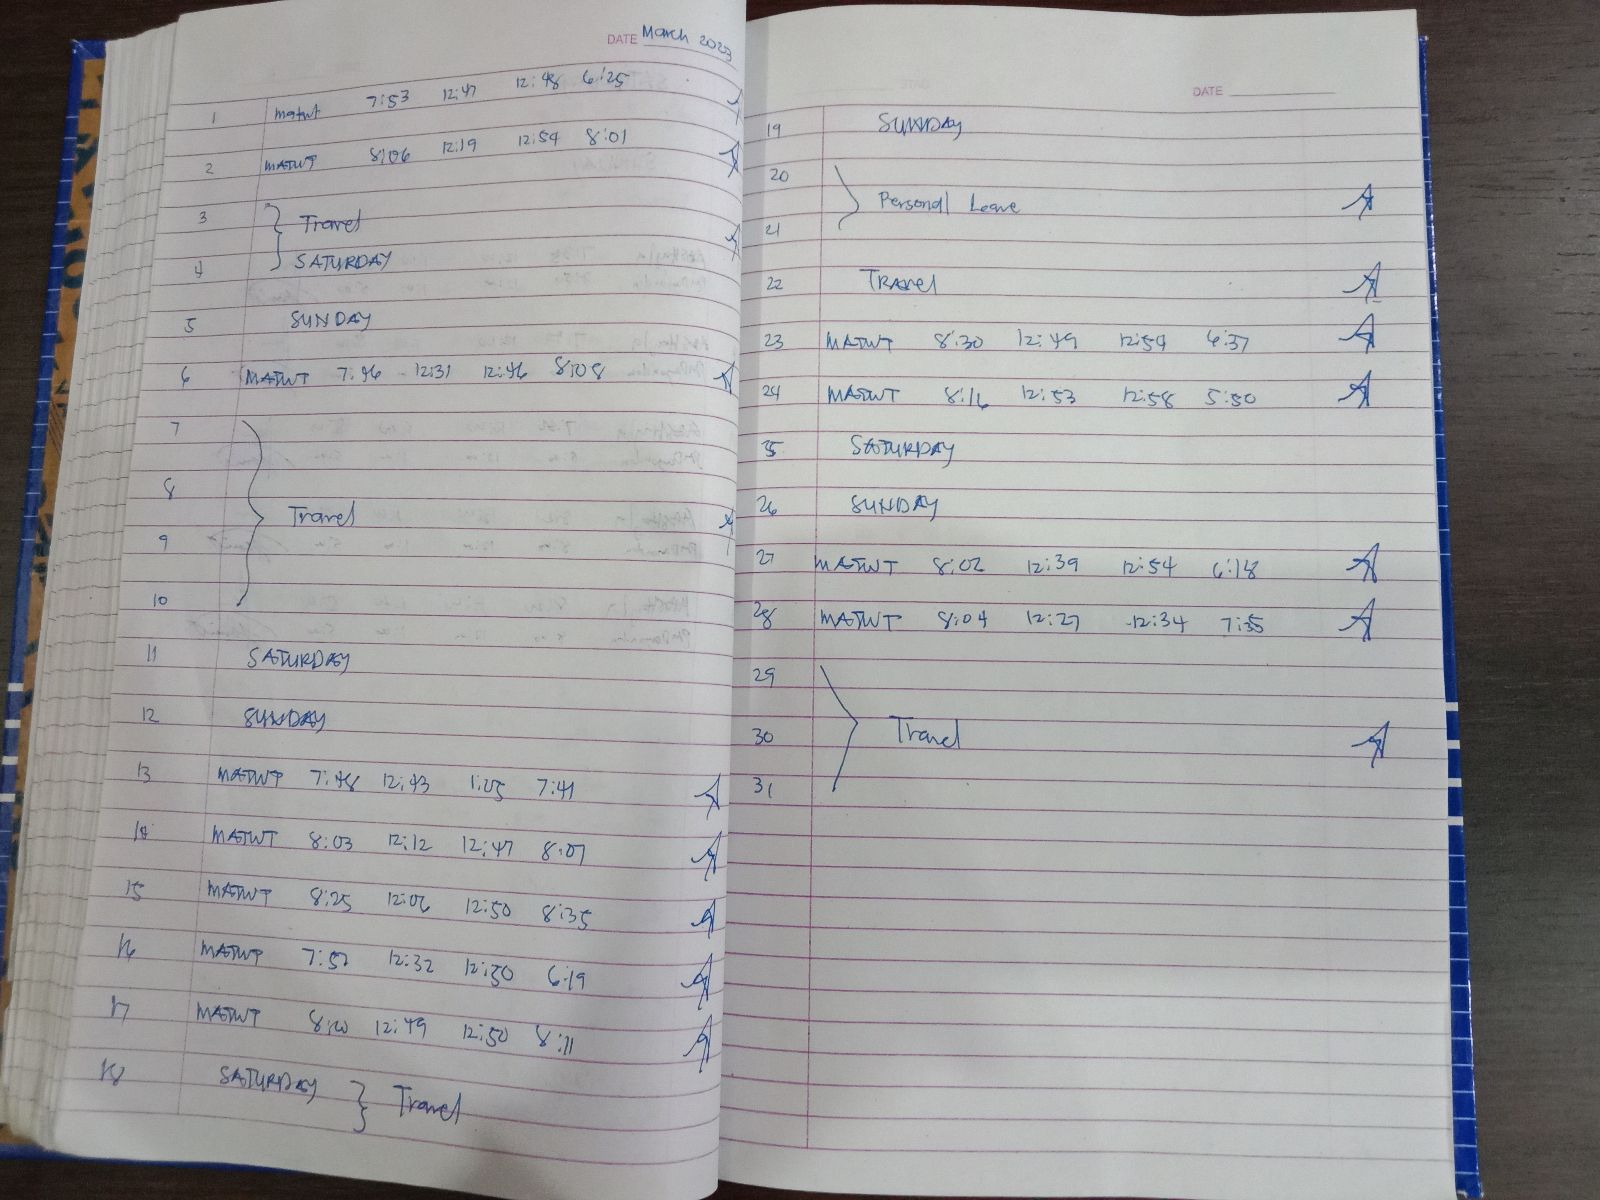 DATE March 2023
1 matwt 7:53 12:47 12:48 6:25
2 MATWT 8:06 12:19 12:54 8:01
3 Travel
4 SATURDAY
5 SUNDAY
6 MATWT 7:46 12:31 12:46 8:08
7
8
Travel
9
10
11 SATURDAY
12 SUNDAY
13 MATWT 7:48 12:43 1:05 7:41
14 MATWT 8:03 12:12 12:47 8:07
15 MATWT 8:25 12:06 12:50 8:35
16 MATWT 7:52 12:32 12:50 6:19
17 MATWT 8:20 12:49 12:50 8:11
18 SATURDAY Travel
DATE
19 SUNDAY
20
Personal Leave
21
22 Travel
23 MATWT 8:30 12:49 12:54 6:37
24 MATWT 8:16 12:53 12:58 5:50
25 SATURDAY
26 SUNDAY
27 MATWT 8:02 12:39 12:54 6:18
28 MATWT 8:04 12:27 12:34 7:35
29
30 Travel
31